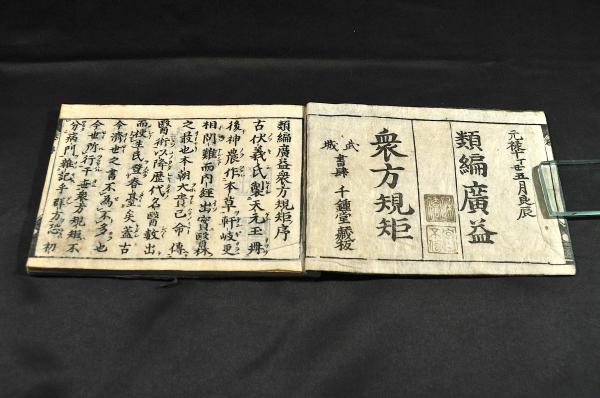 元禄丁丑五月良辰
類編廣益
衆方規矩
武城
書肆 千鍾堂藏板
類編廣益衆方規矩序
古伏羲氏製天元玉冊
後神農作本草軒岐更
相問難而内經出實醫林
之也本朝大貴己命傳
醫術以降歴代名醫數出
而使生民登春臺矣蓋古
今濟世之書不為不多也
今世所行于世衆方規矩不
分病門雜記乎群方恐初